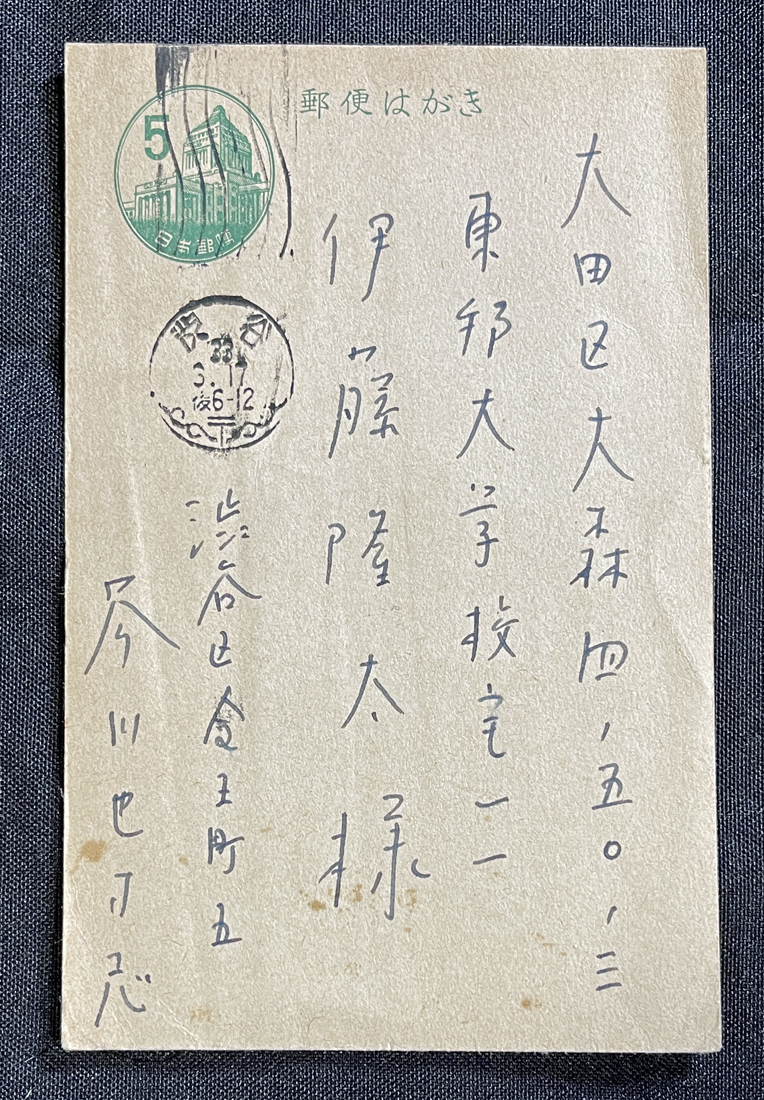 郵便はがき
5
日本郵便
大田区大森四、五〇、三
東邦大学校宅一一
伊藤隆太様
渋谷
33
3.17
後6-12
渋谷区金王町五
芥川也寸志